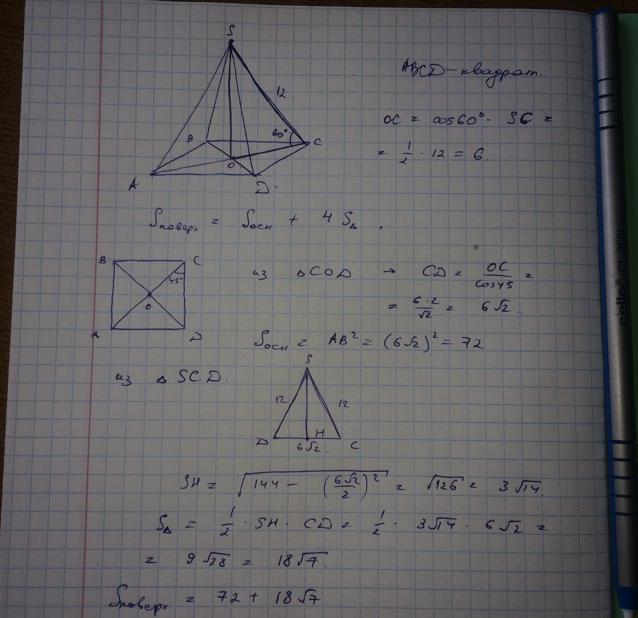 S
ABCD - квадрат.
12
B
60°
C
O
A
D.
OC = cos60° · SC =
= 1/2 · 12 = 6
Sповерх = Sосн + 4 S△ .
B C
45°
O
A D
из △COD → CD = OC/cos45 =
= 6·2/√2 = 6√2
Sосн = AB² = (6√2)² = 72
из △ SCD.
S
12 12
D H C
6√2
SH = √(144 - (6√2/2)²) = √126 = 3√14
S△ = 1/2 · SH · CD = 1/2 · 3√14 · 6√2 =
= 9√28 = 18√7
Sповерх = 72 + 18√7